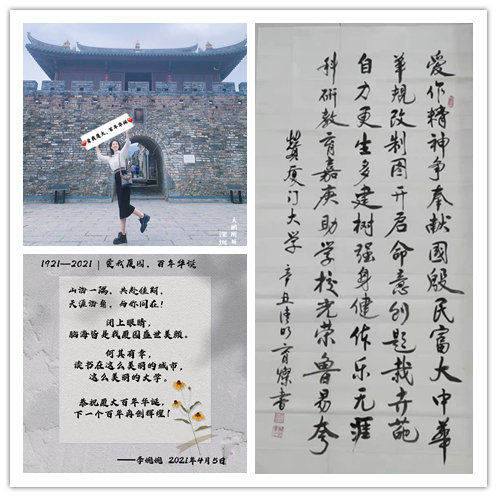 爱我厦大,百年华诞
大鹏所城
深圳
1921—2021 | 爱我厦园,百年华诞
山海一隅,共赴佳期,
天涯海角,与你同在!
闭上眼睛,
脑海皆是我厦园盛世美颜。
何其有幸,
读书在这么美丽的城市,
这么美丽的大学。
恭祝厦大百年华诞,
下一个百年再创辉煌!
——李婉婉 2021年4月5日
愛作精神争奉献國殷民富大中華
革規改制图开启命意创题栽卉葩
自力更生多建樹强身健作乐无涯
科研教育嘉庚助学校光荣鲁易夸
赞厦门大学 辛丑清明育燦書